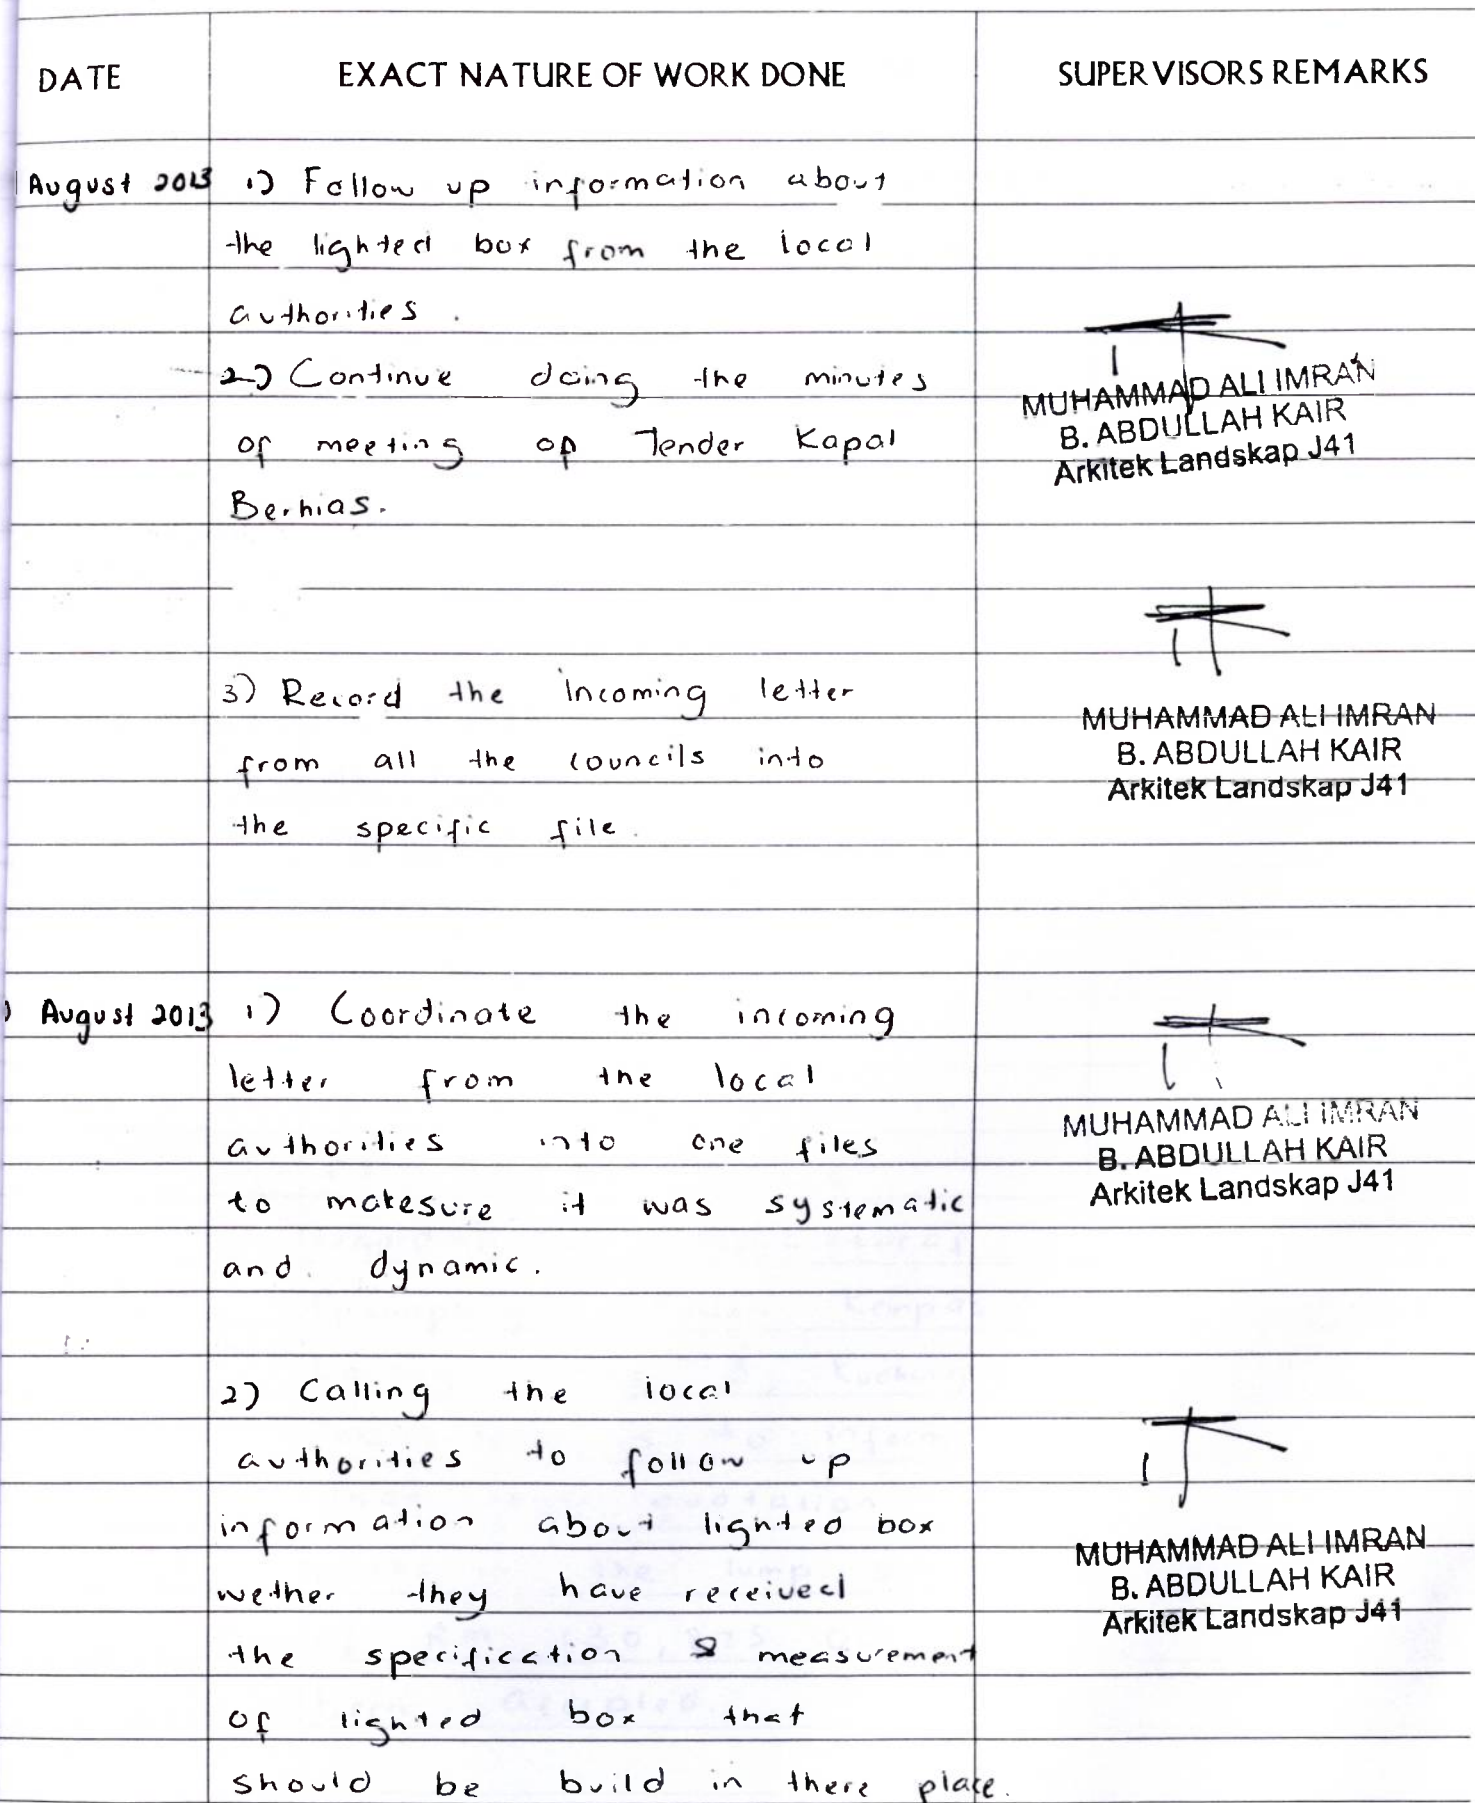 DATE EXACT NATURE OF WORK DONE SUPERVISORS REMARKS
August 2013 1) Follow up information about
the lighted box from the local
authorities.
2) Continue doing the minutes
of meeting of Tender Kapal
Berhias.
MUHAMMAD ALI IMRAN
B. ABDULLAH KAIR
Arkitek Landskap J41
3) Record the incoming letter
from all the councils into
the specific file.
MUHAMMAD ALI IMRAN
B. ABDULLAH KAIR
Arkitek Landskap J41
August 2013 1) Coordinate the incoming
letter from the local
authorities into one files
to makesure it was systematic
and dynamic.
MUHAMMAD ALI IMRAN
B. ABDULLAH KAIR
Arkitek Landskap J41
2) Calling the local
authorities to follow up
information about lighted box
wether they have received
the specification & measurement
of lighted box that
should be build in there place.
MUHAMMAD ALI IMRAN
B. ABDULLAH KAIR
Arkitek Landskap J41